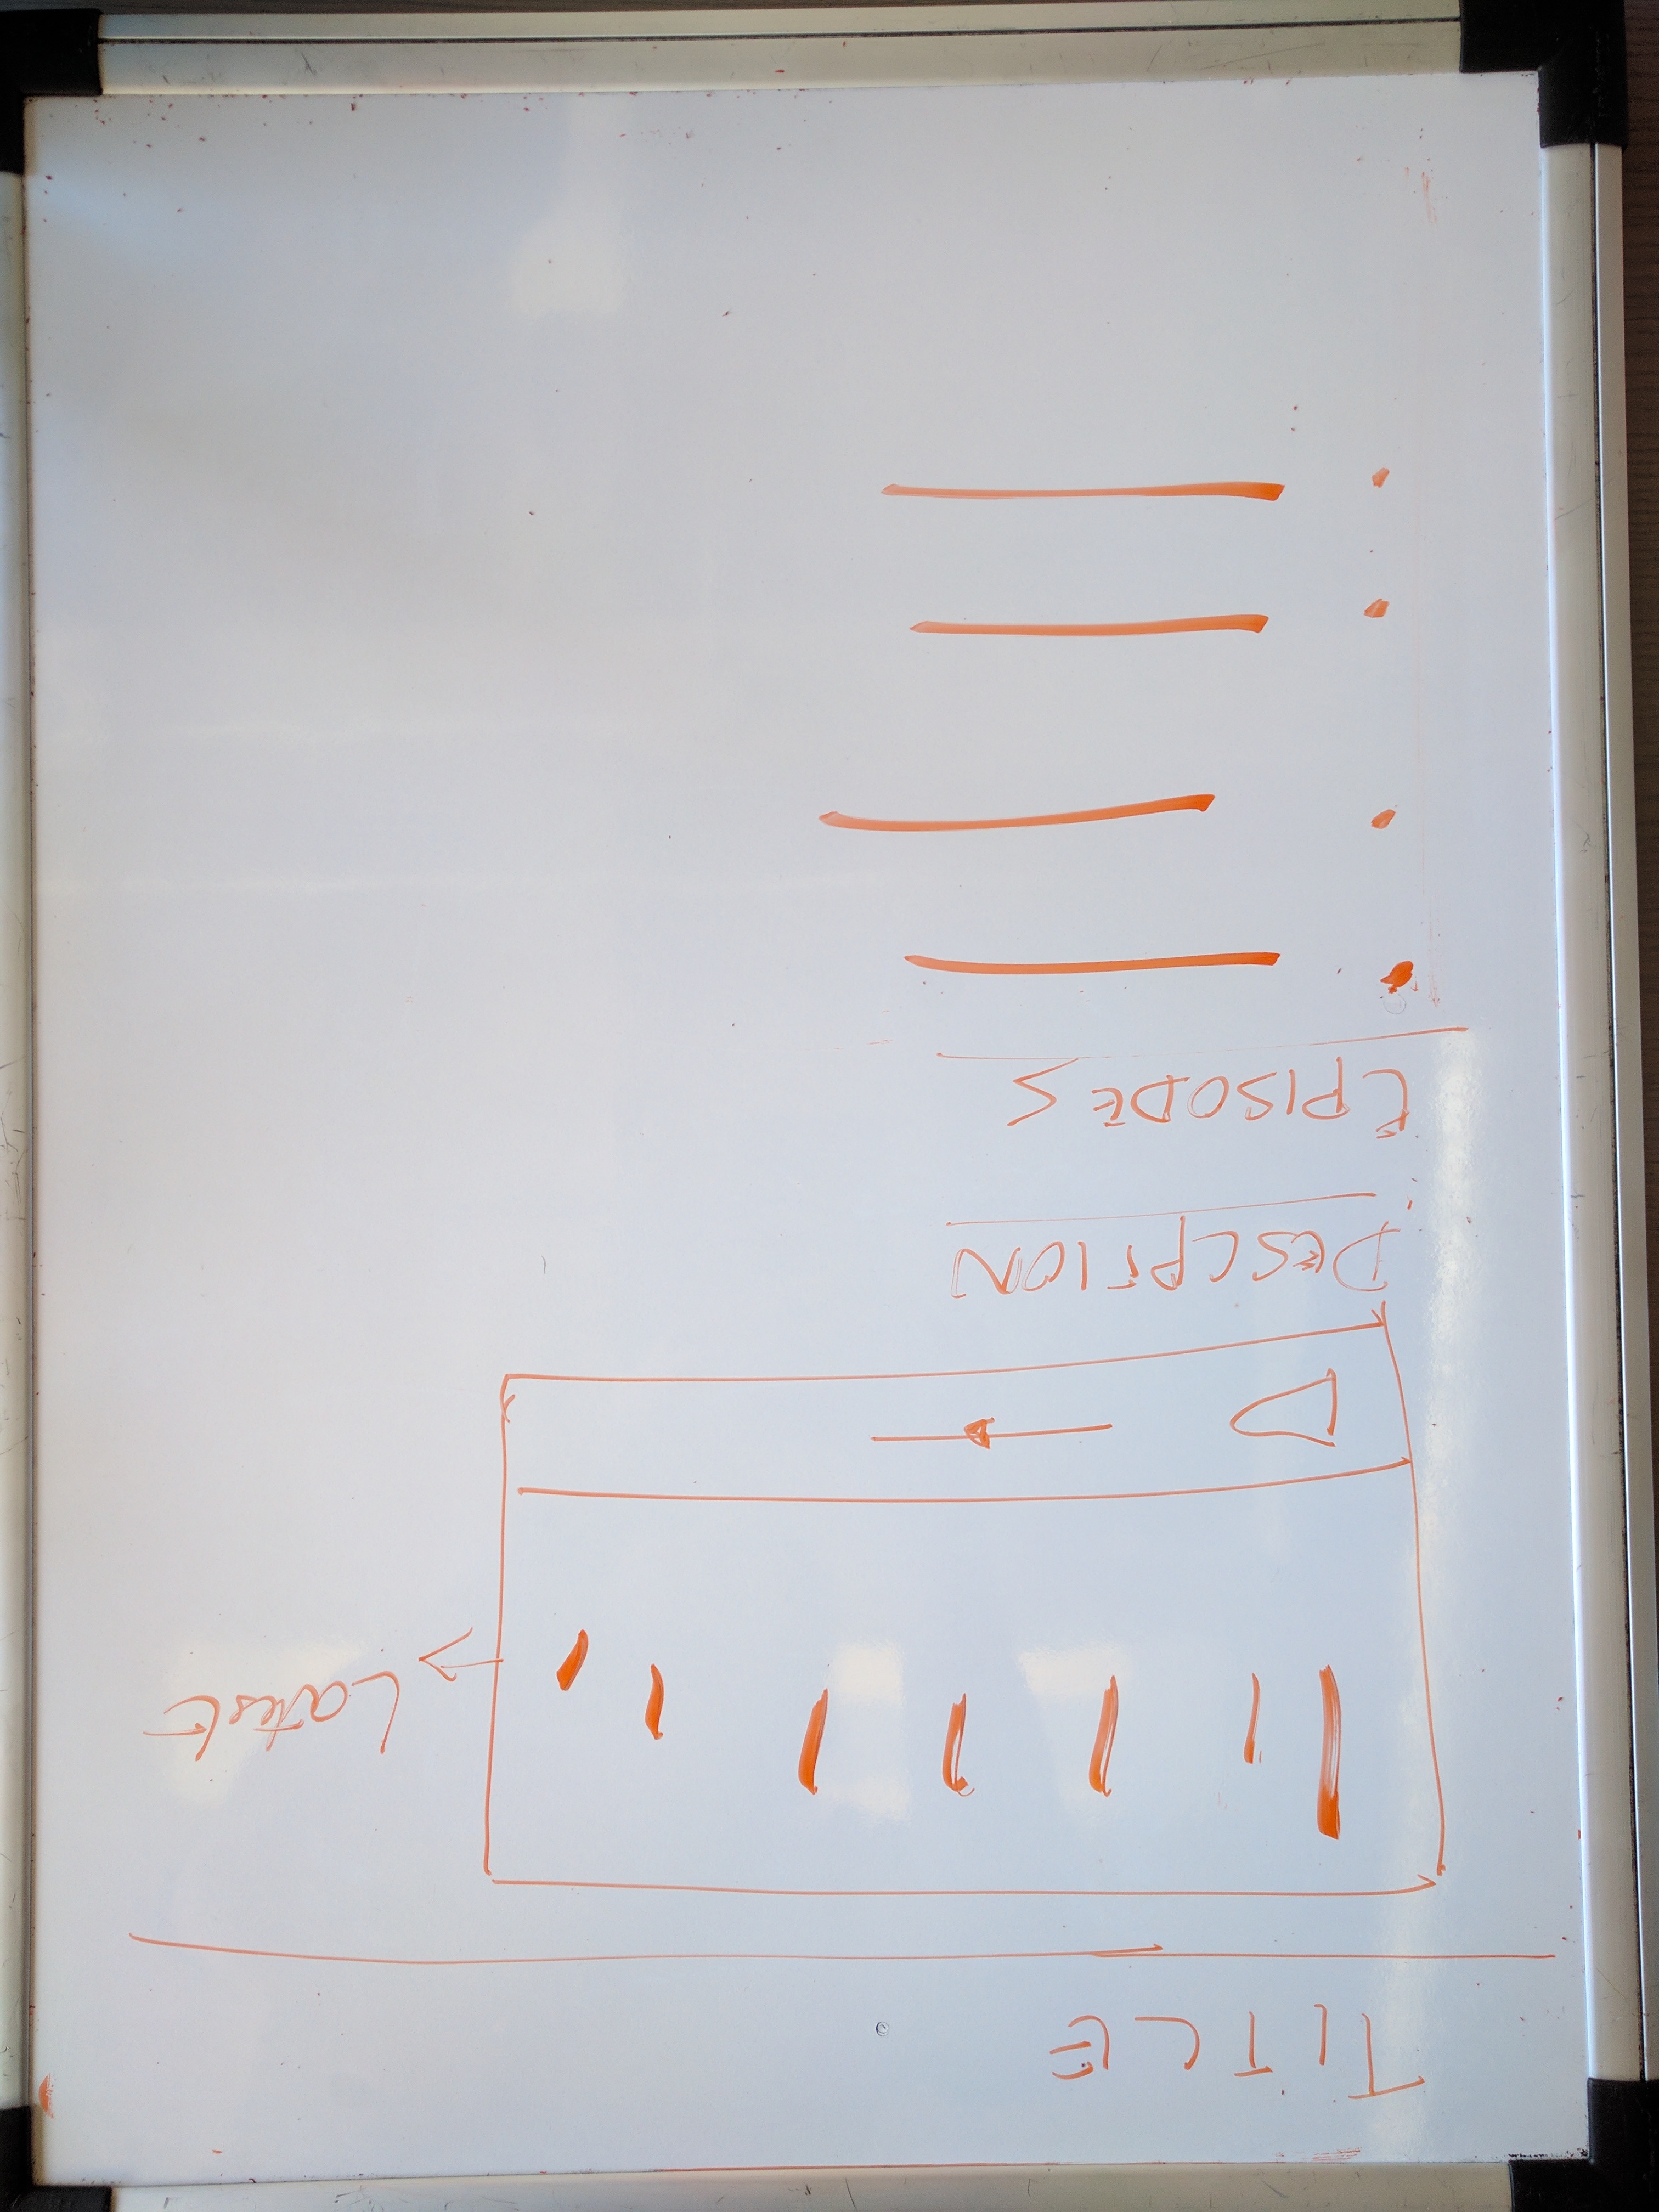 TITLE
Latest
DESCPTION
EPISODES